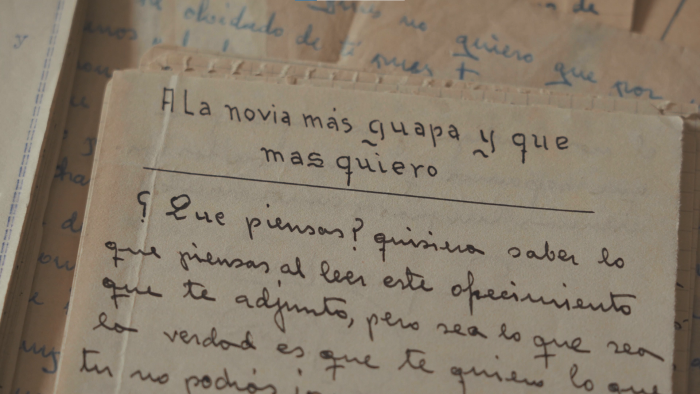 de
olvidado de ti pues
no quiero que por
y
A La novia más guapa y que
mas quiero
¿ Que piensas? quisiera saber lo
que piensas al leer este ofrecimiento
que te adjunto, pero sea lo que sea
la verdad es que te quiero lo que
tu no podrás